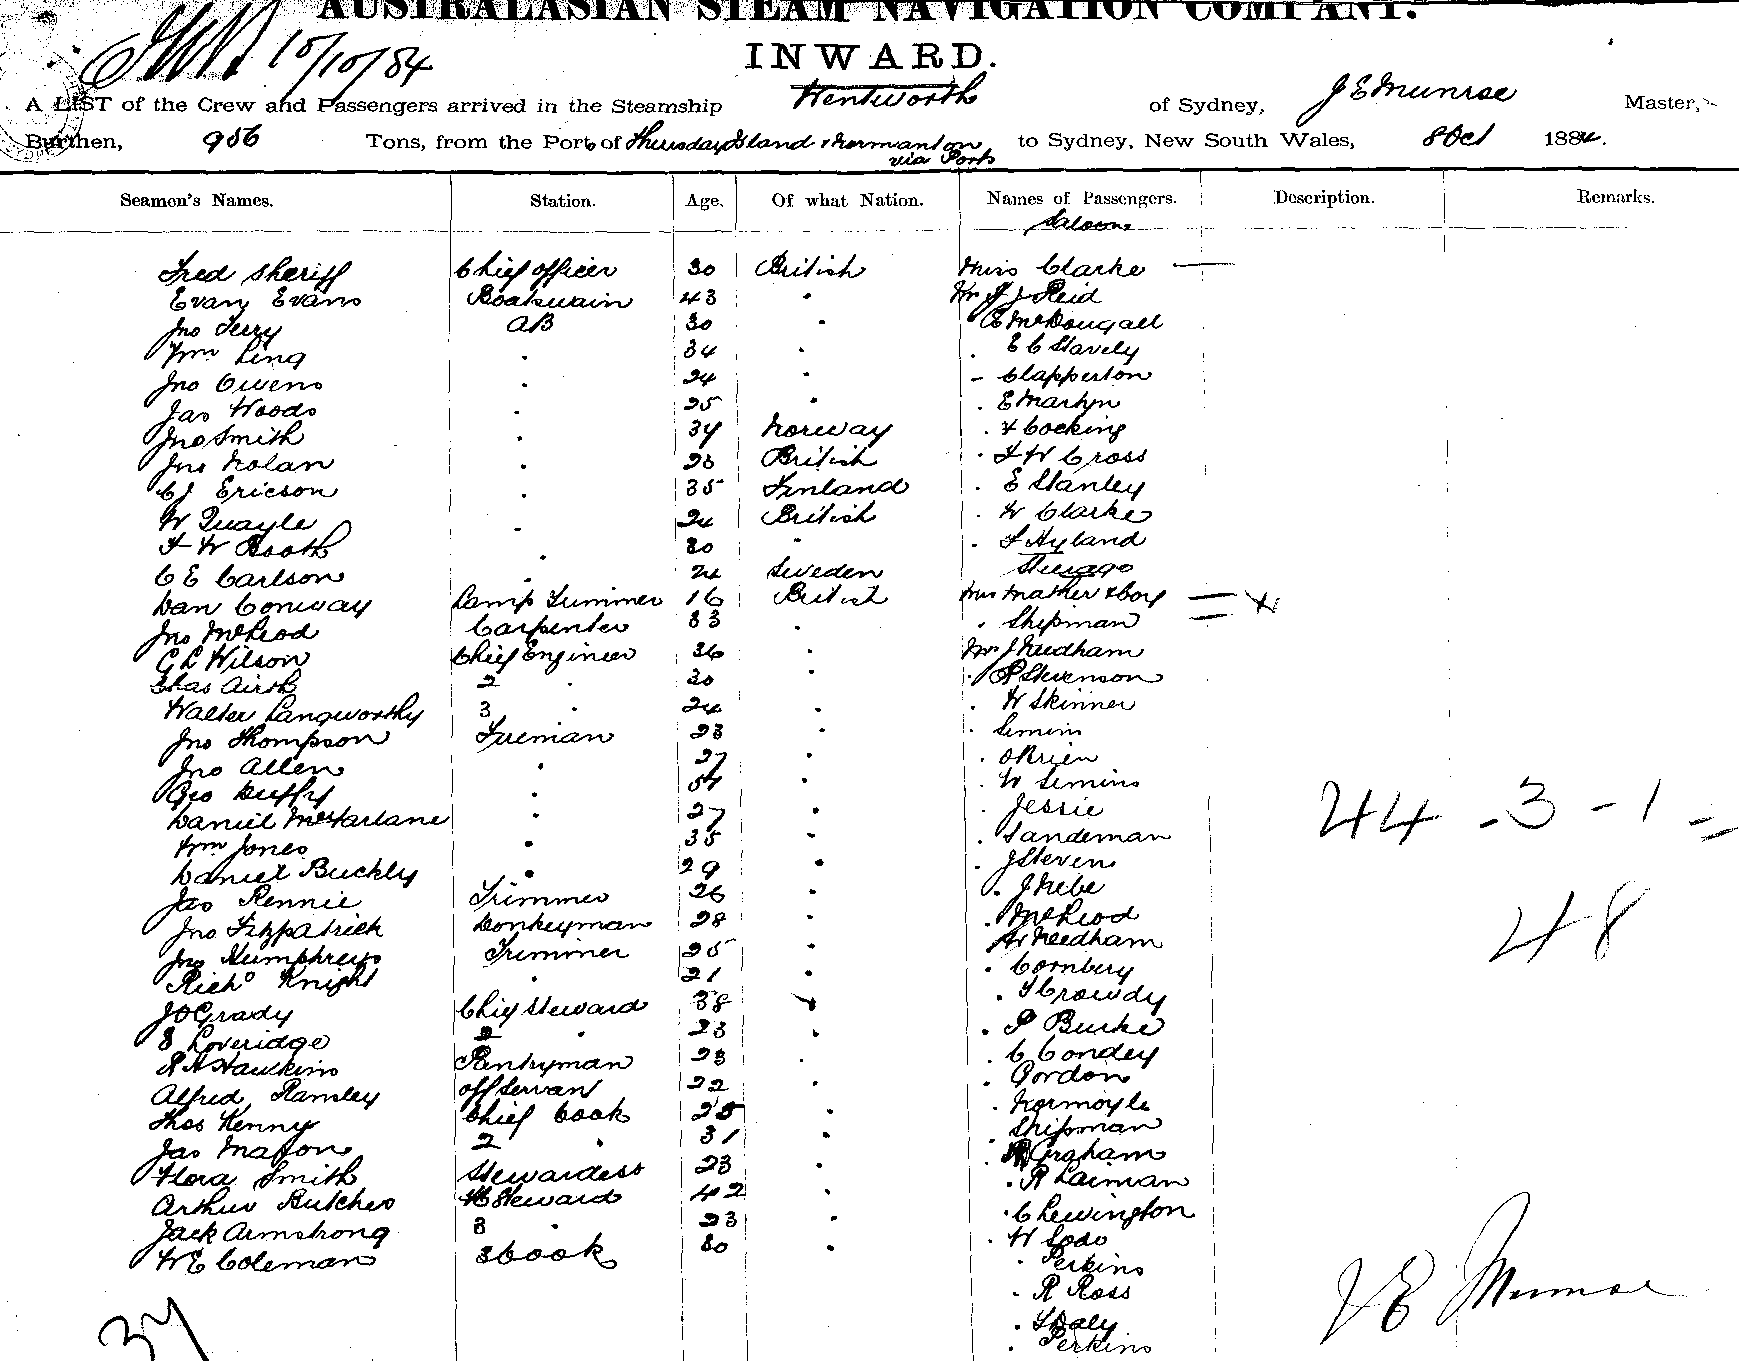 AUSTRALASIAN STEAM NAVIGATION COMPANY.
15/10/84
INWARD.
A LIST of the Crew and Passengers arrived in the Steamship Wentworth of Sydney, J E Munroe Master,
Burthen, 956 Tons, from the Port of Thursday Island & Normanton via Ports to Sydney, New South Wales, 8 Oct 1884.
Seamen's Names. Station. Age. Of what Nation. Names of Passengers. Description. Remarks.
Saloon
Fred Sheriff Chief officer 30 British Miss Clarke —
Evan Evans Boatswain 43 " Mr J Reid
Jno Terry AB 30 " " E McDougall
Wm Ling " 34 " " E C Stavely
Jno Owens " 24 " " Clapperton
Jas Woods " 25 " " E Martyn
Jno Smith " 34 Norway " Cocking
Jno Nolan " 23 British " F W Cross
C J Ericson " 35 Finland " E Stanley
W Quayle " 24 British " W Clarke
F W Booth " 30 " " Hyland
C E Carlson " 24 Sweden Steerage
Dan Conway Lamp Trimmer 16 British Mrs Mather & boy = x
Jno McLeod Carpenter 33 " " Shipman
G L Wilson Chief Engineer 36 " Mr J Needham
Chas Airth 2 " 30 " " P Stevenson
Walter Langworthy 3 " 24 " " W Skinner
Jno Thompson Fireman 23 " " Simins
Jno Allen " 27 " " OBrien
Geo Duffy " " " W Simins
Daniel McFarlane " 27 " " Jessie
Wm Jones " 35 " " Sandeman
Daniel Buckly " 29 " " J Steven
Jas Rennie Trimmer 26 " "
Jno Fitzpatrick Donkeyman 28 " " McLeod
Jno Humphreys Trimmer 25 " " Needham
Richd Knight " 21 " " Cornbery
J OGrady Chief Steward 38 " " Crowdy
E Loveridge 2 " 23 " " P Burke
R H Hawkins Pantryman 23 " " C Condey
Alfred Ramsley off Servant 22 " " Gordon
Thos Kenny Chief Cook 25 " " Normoyle
Jas Matson 2 " 31 " " Shipman
Flora Smith Stewardess 23 " " Graham
Arthur Butcher Steward 42 " " R Laiman
Jack Armstrong 3 " 23 " " C Lewington
W E Coleman 3 Cook 30 " " W
" Perkins
" R Ross
" Daly
" Perkins
44 - 3 - 1 =
48
J E Munroe
37